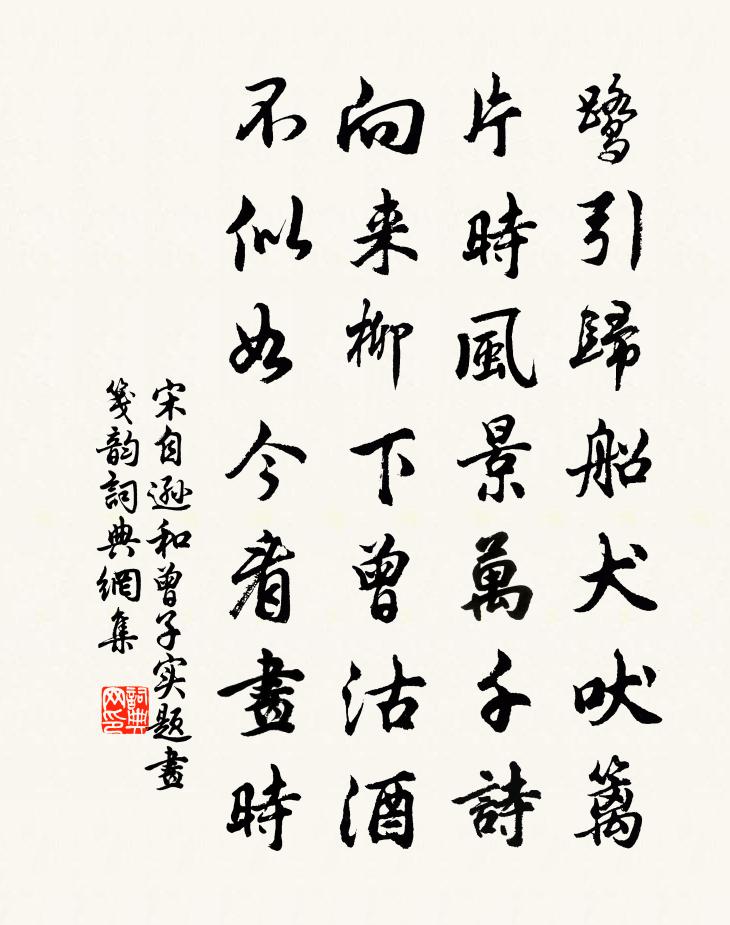 鹭引歸船犬吠籬
片時風景萬千詩
向来柳下曾沽酒
不似如今看畫時
宋自遜和曾子实题畫
笺韵詞典網集
詞典网印